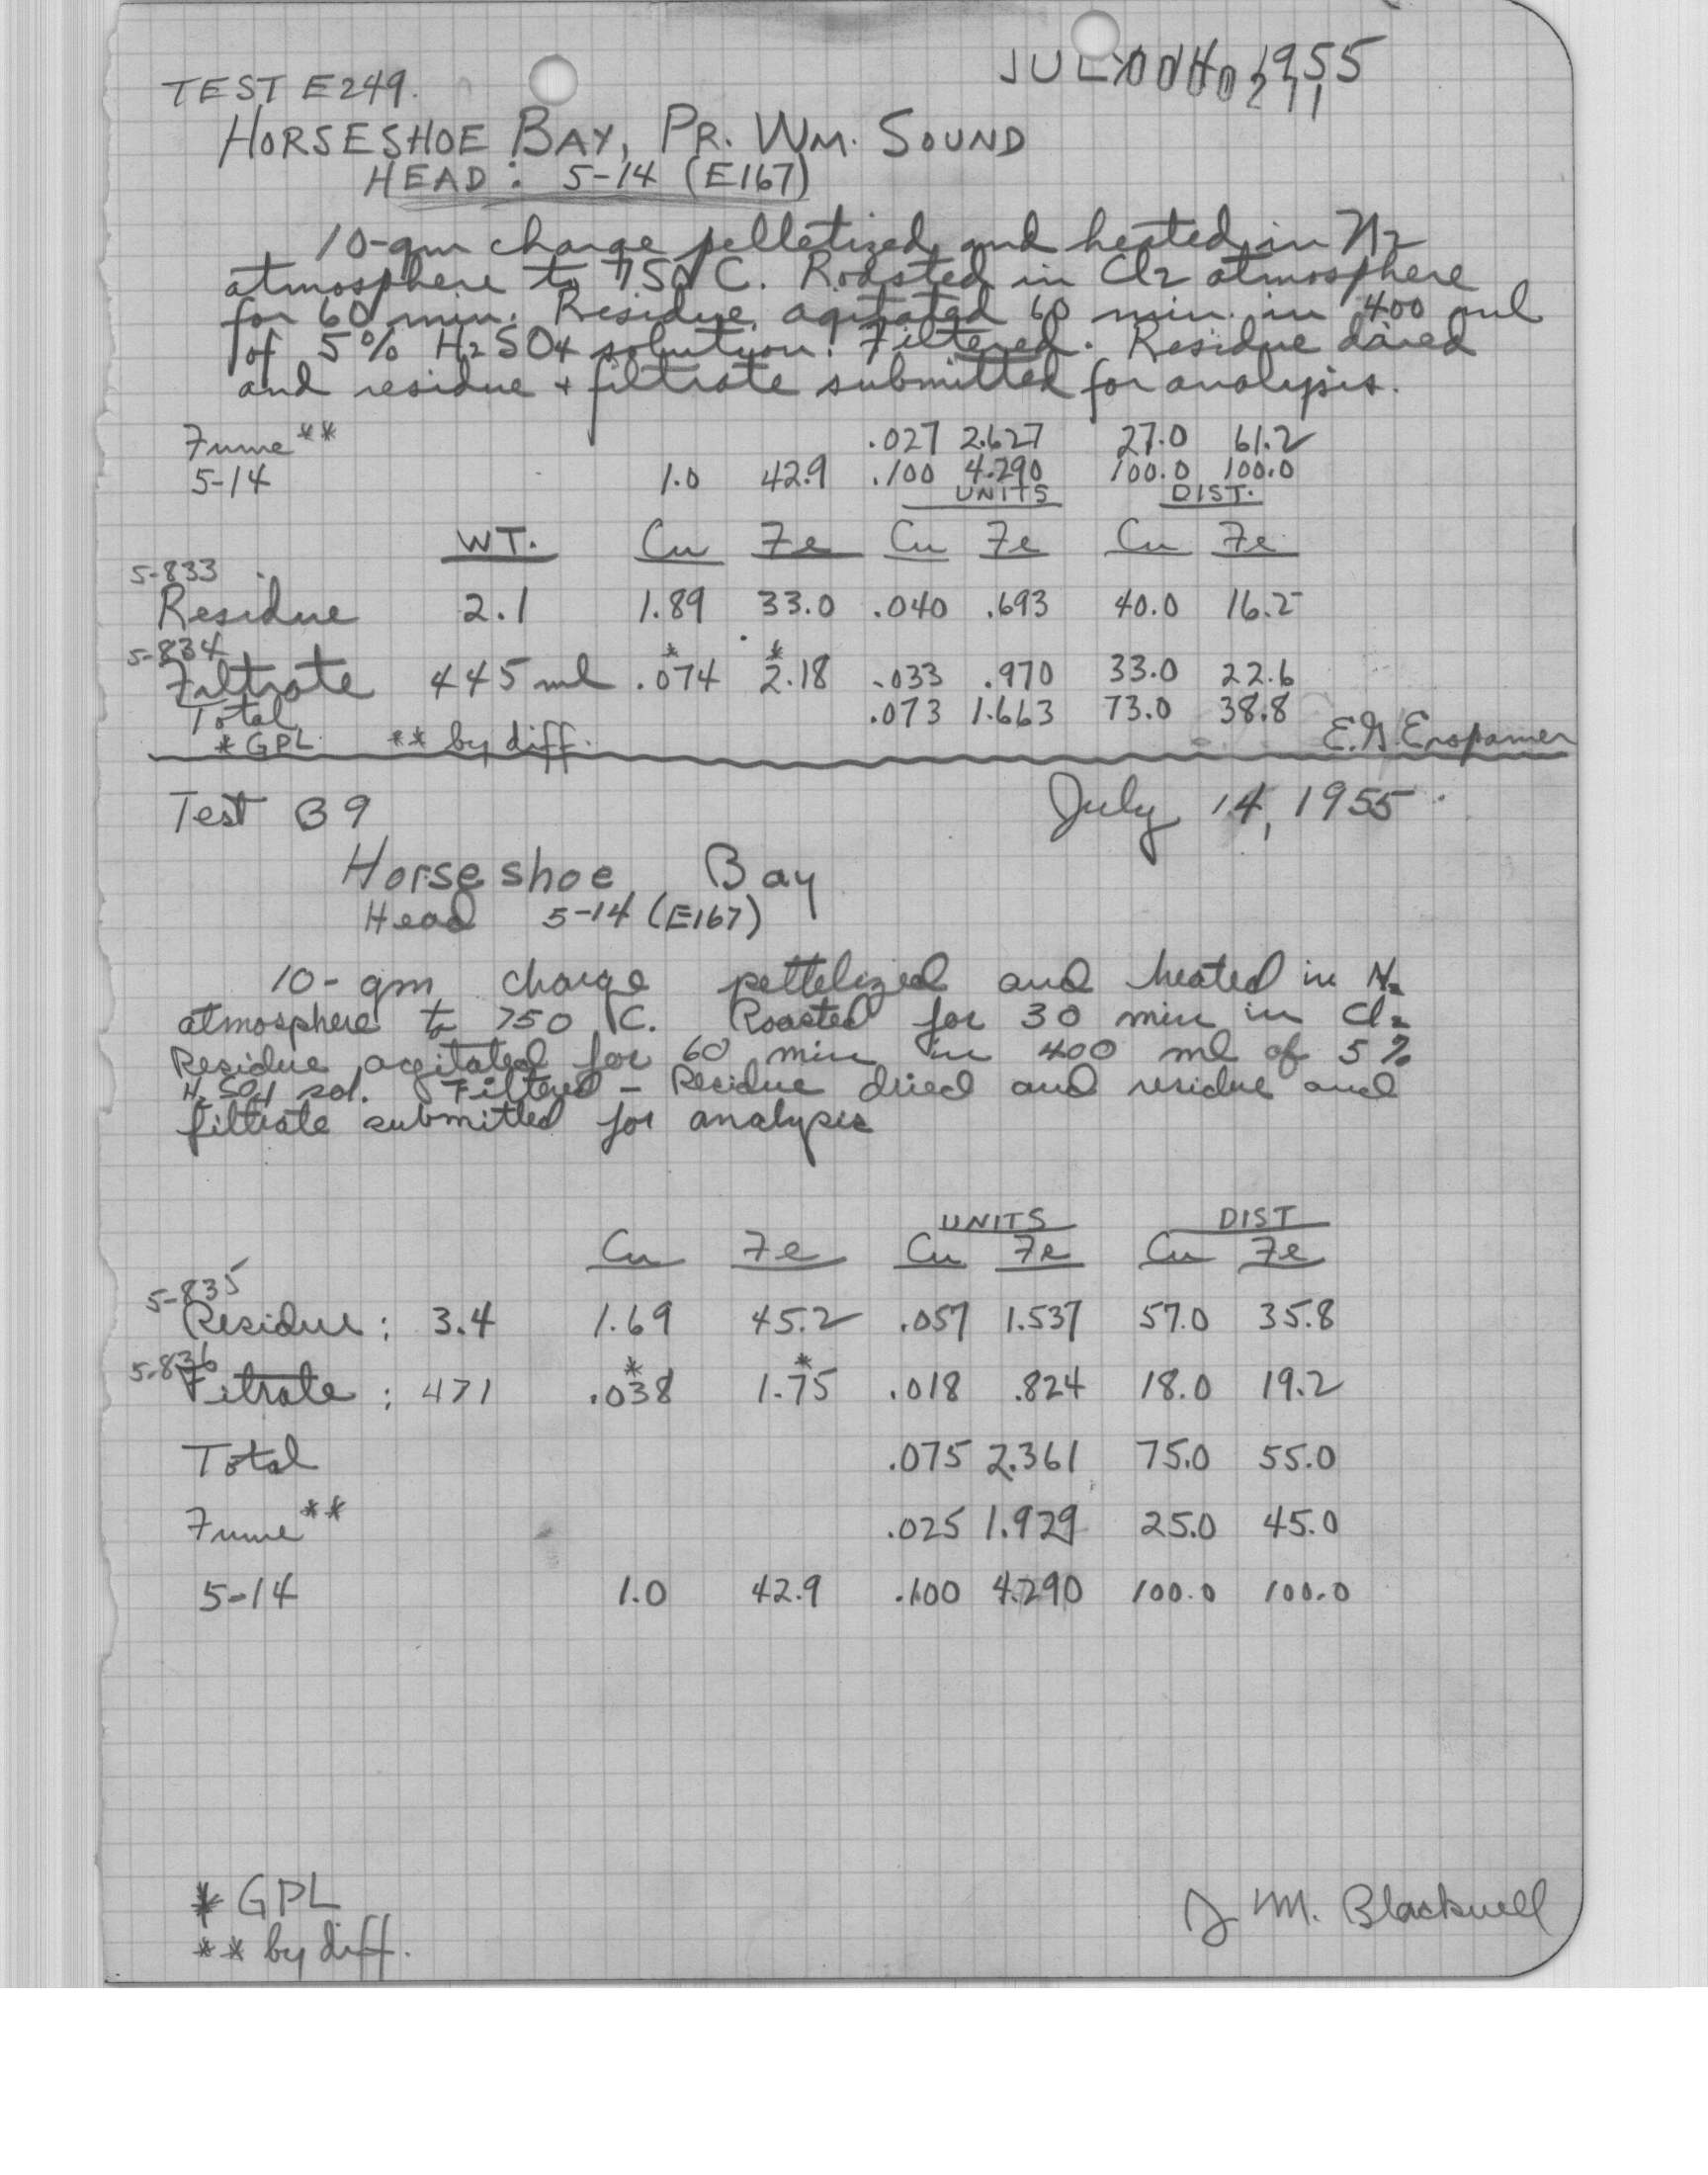 TEST E249.
JULY 1955
HORSESHOE BAY, PR. WM. SOUND
HEAD: 5-14 (E167)
10-gm charge pelletized and heated in N2
atmosphere to 750 C. Roasted in Cl2 atmosphere
for 60 min. Residue agitated 60 min. in 400 ml
of 5% H2SO4 solution. Filtered. Residue dried
and residue + filtrate submitted for analysis.
Fume** .027 2.627 27.0 61.2
5-14 1.0 42.9 .100 4.290 100.0 100.0
UNITS DIST.
WT. Cu Fe Cu Fe Cu Fe
5-833
Residue 2.1 1.89 33.0 .040 .693 40.0 16.2
5-834
Filtrate 445 ml .074* 2.18* .033 .970 33.0 22.6
Total .073 1.663 73.0 38.8
* GPL ** by diff.
Test B9 July 14, 1955
Horseshoe Bay
Head 5-14 (E167)
10-gm charge pettelized and heated in N2
atmosphere to 750 C. Roasted for 30 min in Cl2
Residue agitated for 60 min in 400 ml of 5%
H2SO4 sol. Filtered - Residue dried and residue and
filtrate submitted for analysis
UNITS DIST
Cu Fe Cu Fe Cu Fe
5-835
Residue: 3.4 1.69 45.2 .057 1.537 57.0 35.8
5-836
Fitrate: 471 .038* 1.75* .018 .824 18.0 19.2
Total .075 2.361 75.0 55.0
Fume** .025 1.929 25.0 45.0
5-14 1.0 42.9 .100 4.290 100.0 100.0
* GPL
** by diff.
J M. Blackwell